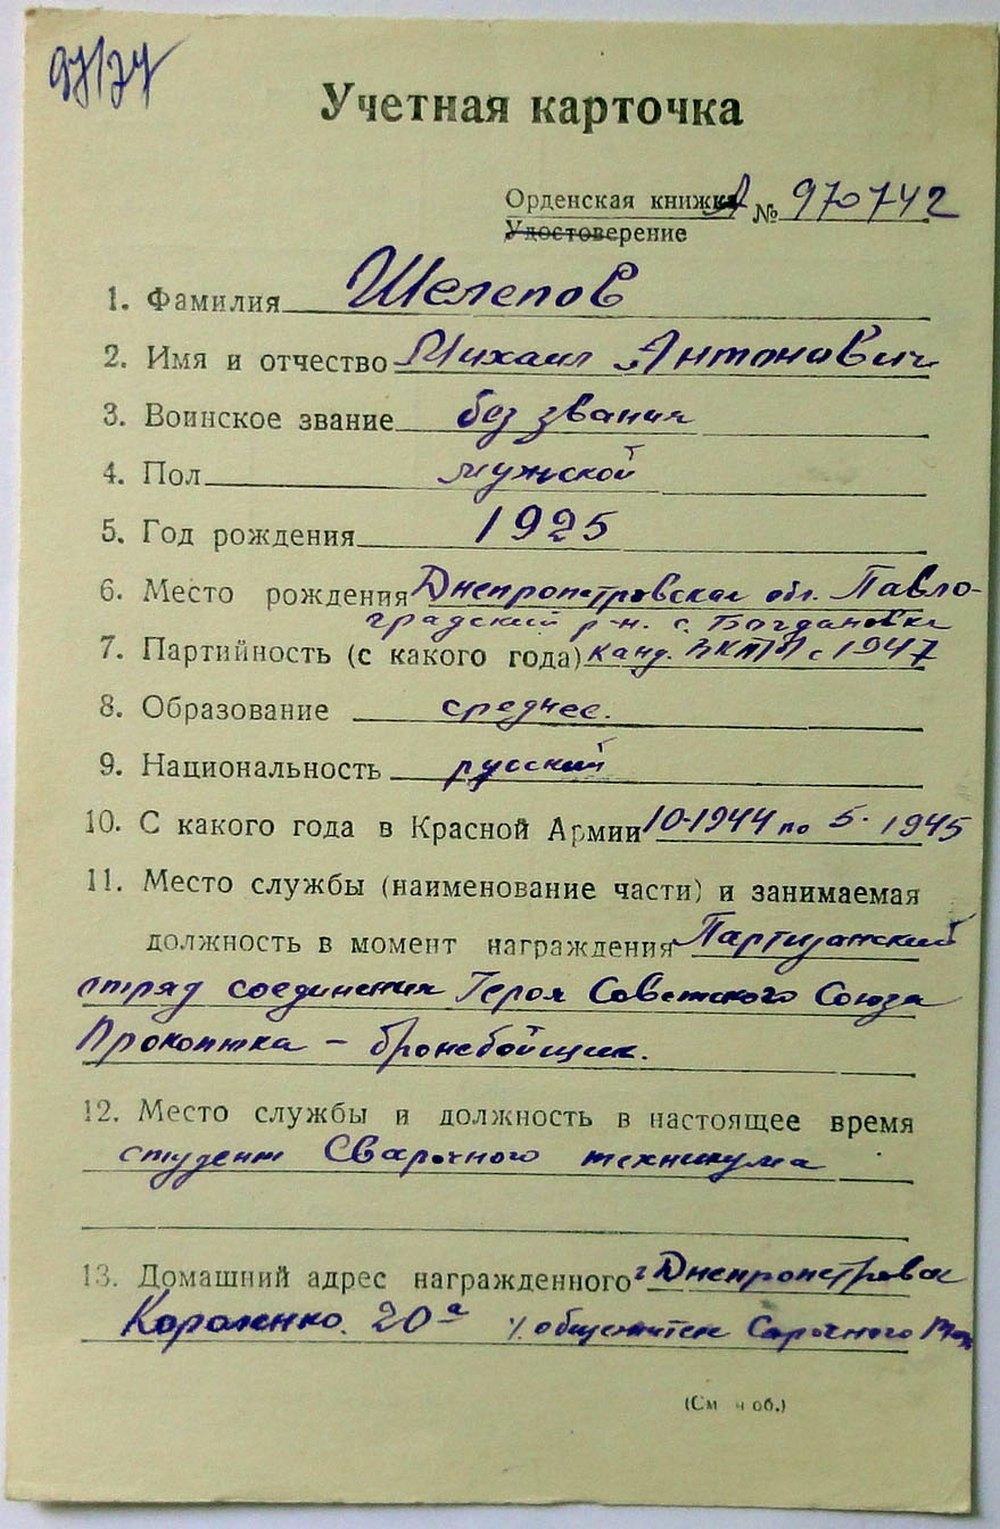 Учетная карточка
Орденская книжка А № 970742
Удостоверение
1. Фамилия Шелепов
2. Имя и отчество Михаил Антонович
3. Воинское звание без звания
4. Пол мужской
5. Год рождения 1925
6. Место рождения Днепропетровская обл. Павло-
градский р-н. с. Богдановка
7. Партийность (с какого года) канд. ВКП(б) с 1947
8. Образование среднее.
9. Национальность русский
10. С какого года в Красной Армии 10-1944 по 5. 1945
11. Место службы (наименование части) и занимаемая
должность в момент награждения Партизанский
отряд соединения Героя Советского Союза
– бронебойщик.
12. Место службы и должность в настоящее время
студент Сварочного техникума
13. Домашний адрес награжденного г Днепропетровск
Короленко. 20а общежитие
(См н об.)